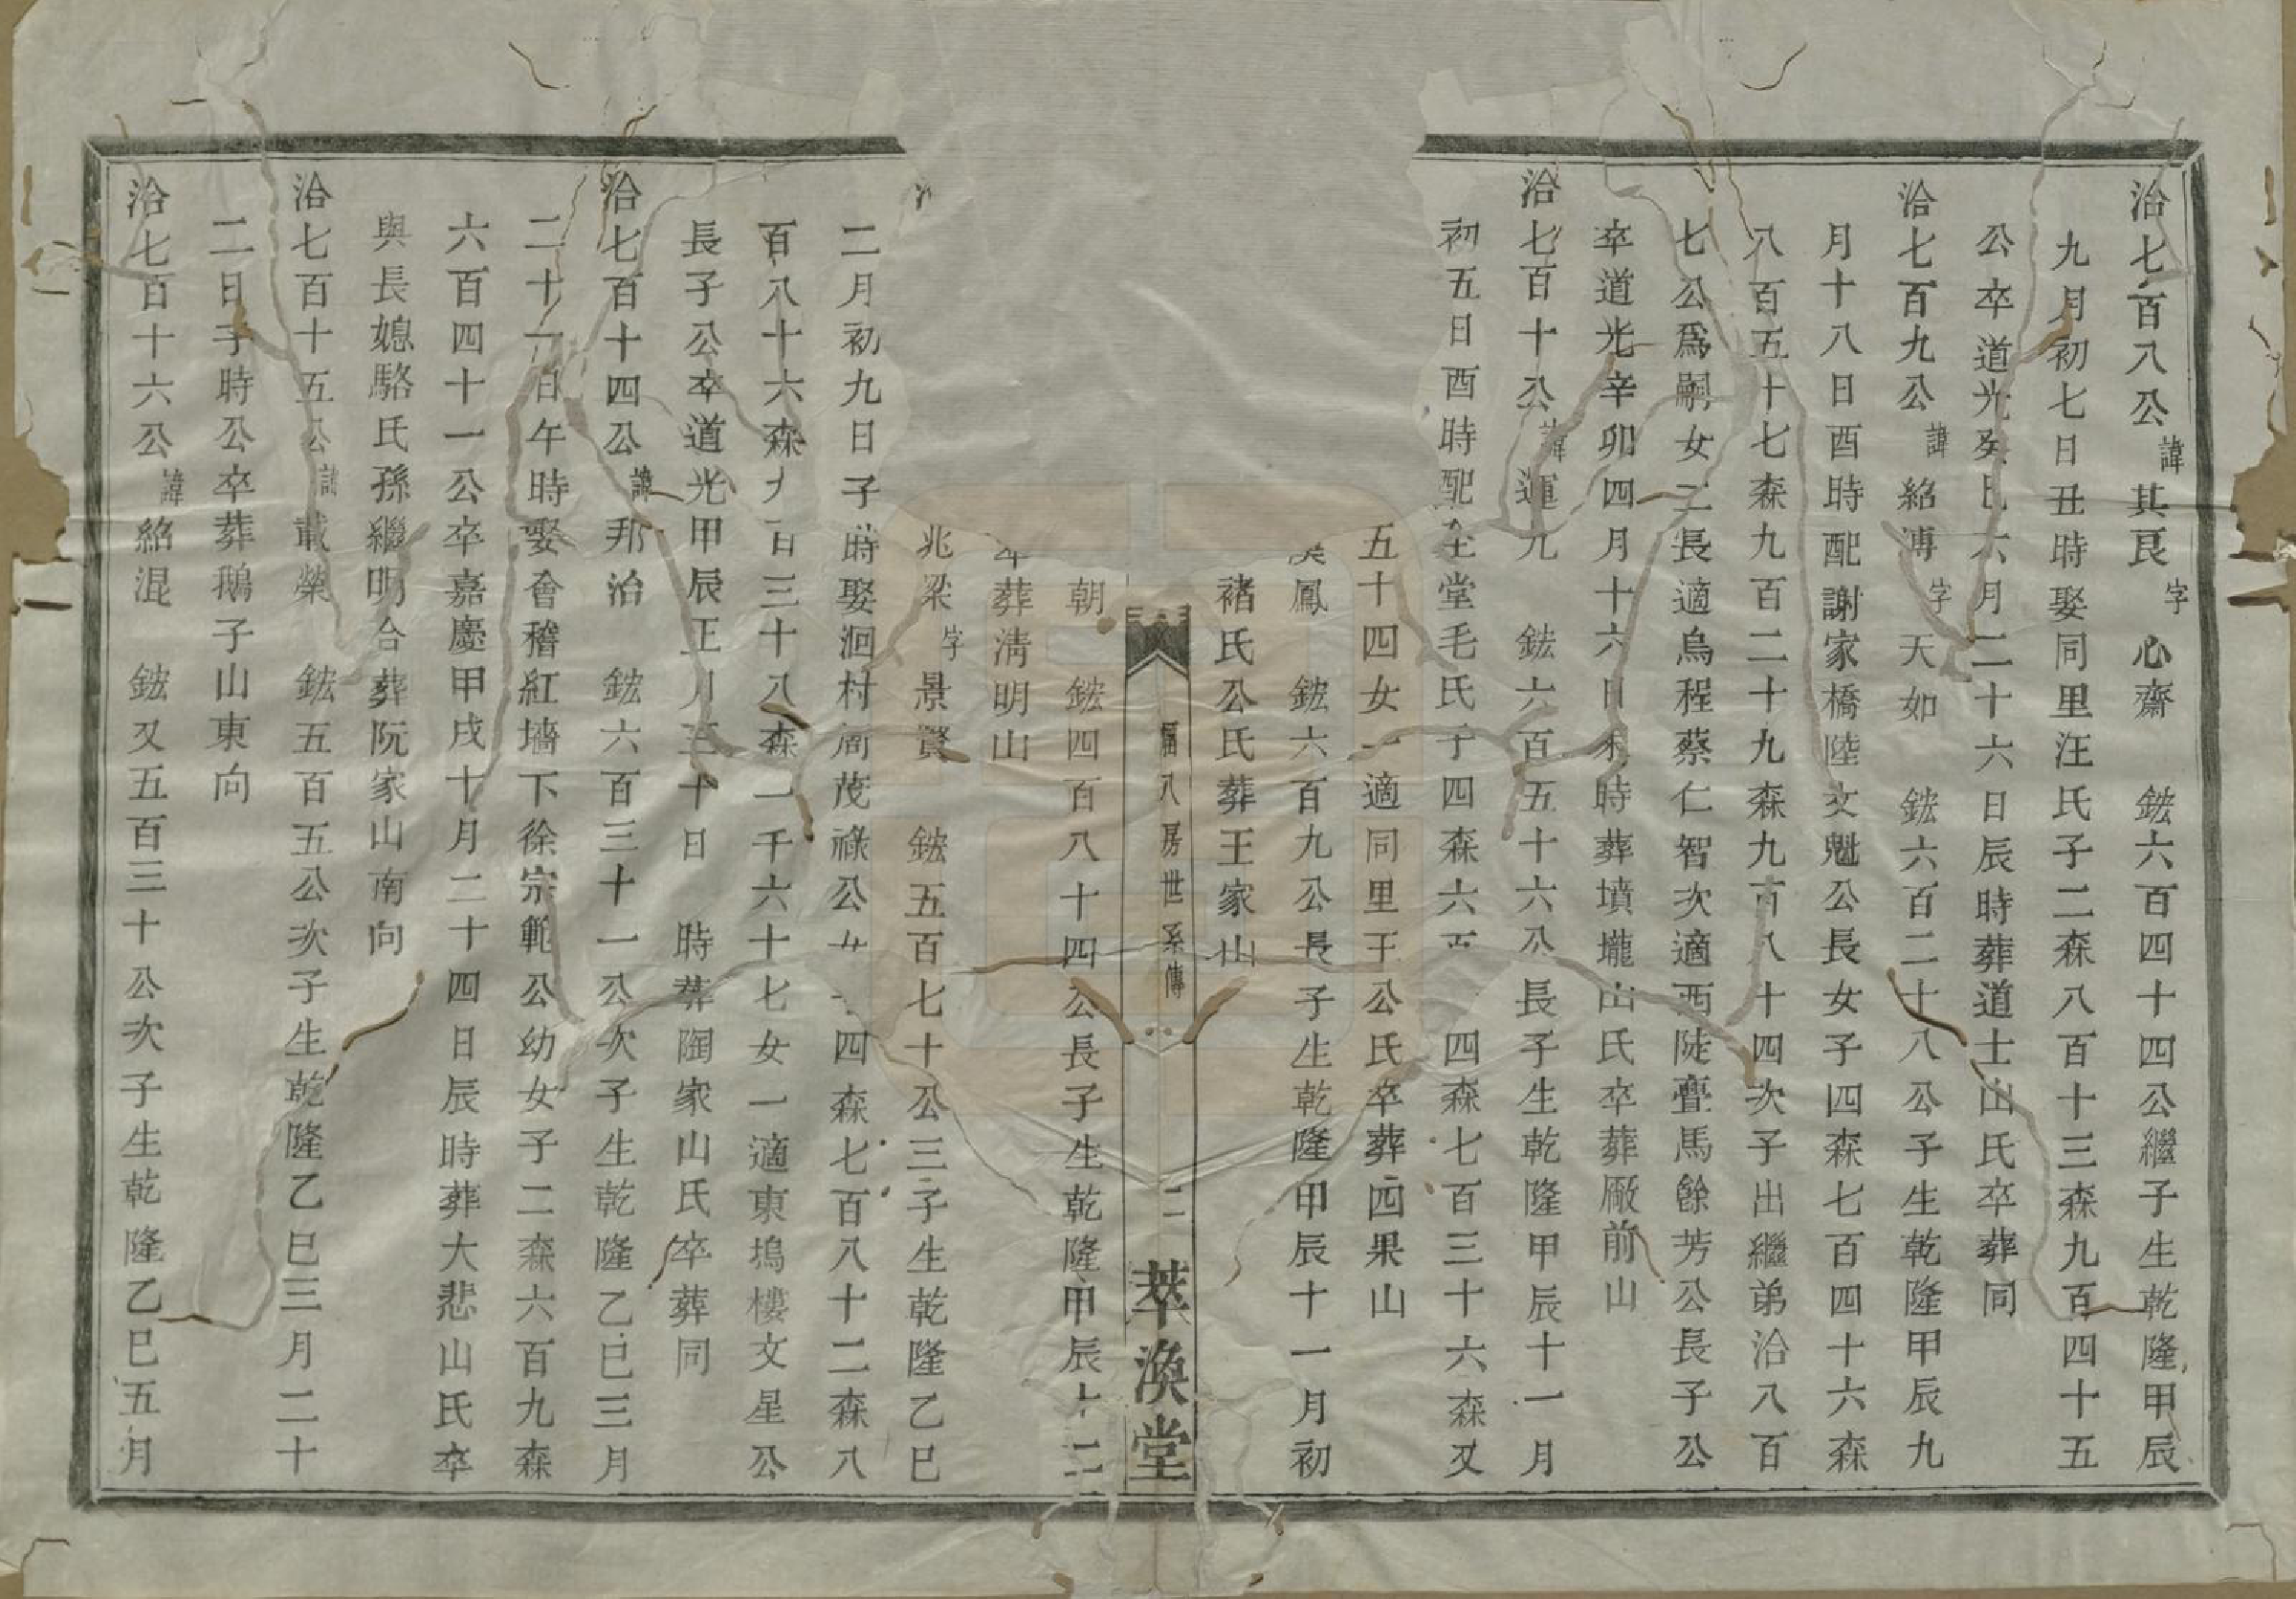 洽七百八公諱其良字心齋 鋐六百四十四公繼子生乾隆甲辰
九月初七日丑時娶同里汪氏子二森八百十三森九百四十五
公卒道光癸巳六月二十六日辰時葬道士山氏卒葬同
洽七百九公諱紹溥字天如 鋐六百二十八公子生乾隆甲辰九
月十八日酉時配謝家橋陸文魁公長女子四森七百四十六森
八百五十七森九百二十九森九百八十四次子出繼弟洽八百
七公爲嗣女二長適烏程蔡仁智次適西陡亹馬餘芳公長子公
卒道光辛卯四月十六日 時葬墳壠山氏卒葬廠前山
洽七百十公諱運九 鋐六百五十六公長子生乾隆甲辰十一月
初五日酉時配 堂毛氏子四森六 四森七百三十六森又
五十四女一適同里王公氏卒葬四果山
鳳 鋐六百九公長子生乾隆甲辰十一月初
褚氏公氏葬王家山
福八房世系傳 二 萃渙堂
朝 鋐四百八十四公長子生乾隆甲辰 二
葬淸明山
兆梁字景賢 鋐五百七十公三子生乾隆乙巳
二月初九日子時娶洄村周茂祿公 四森七百八十二森八
百八十六森 百三十八森一千六十七女一適東塢樓文星公
長子公卒道光甲辰正月三十日 時葬陶家山氏卒葬同
洽七百十四公諱邦治 鋐六百三十一公次子生乾隆乙巳三月
二十一日午時娶會稽紅墻下徐宗範公幼女子二森六百九森
六百四十一公卒嘉慶甲戌十月二十四日辰時葬大悲山氏卒
與長媳駱氏孫繼明合葬阮家山南向
洽七百十五公諱載榮 鋐五百五公次子生乾隆乙巳三月二十
二日子時公卒葬鵝子山東向
洽七百十六公諱紹混 鋐又五百三十公次子生乾隆乙巳五月